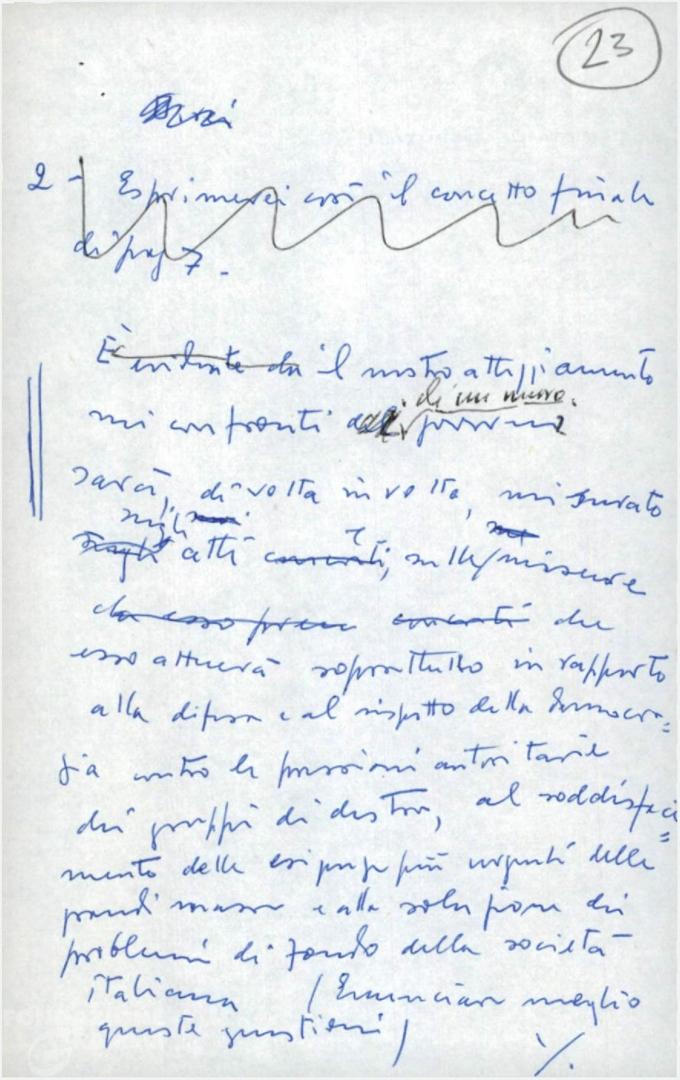 23
2 - Esprimerei così il concetto finale
di pag. 7.
È evidente che il nostro atteggiamento
nei confronti di un nuovo governo
sarà, di volta in volta, misurato
sugli atti concreti, e sulle misure
che esso concreti che
esso attuerà soprattutto in rapporto
alla difesa e al rispetto della democra=
zia contro le pressioni autoritarie
dei gruppi di destra, al soddisfaci=
mento delle esigenze più urgenti delle
grandi masse e alla soluzione dei
problemi di fondo della società
italiana (Enunciare meglio
queste questioni)
./.